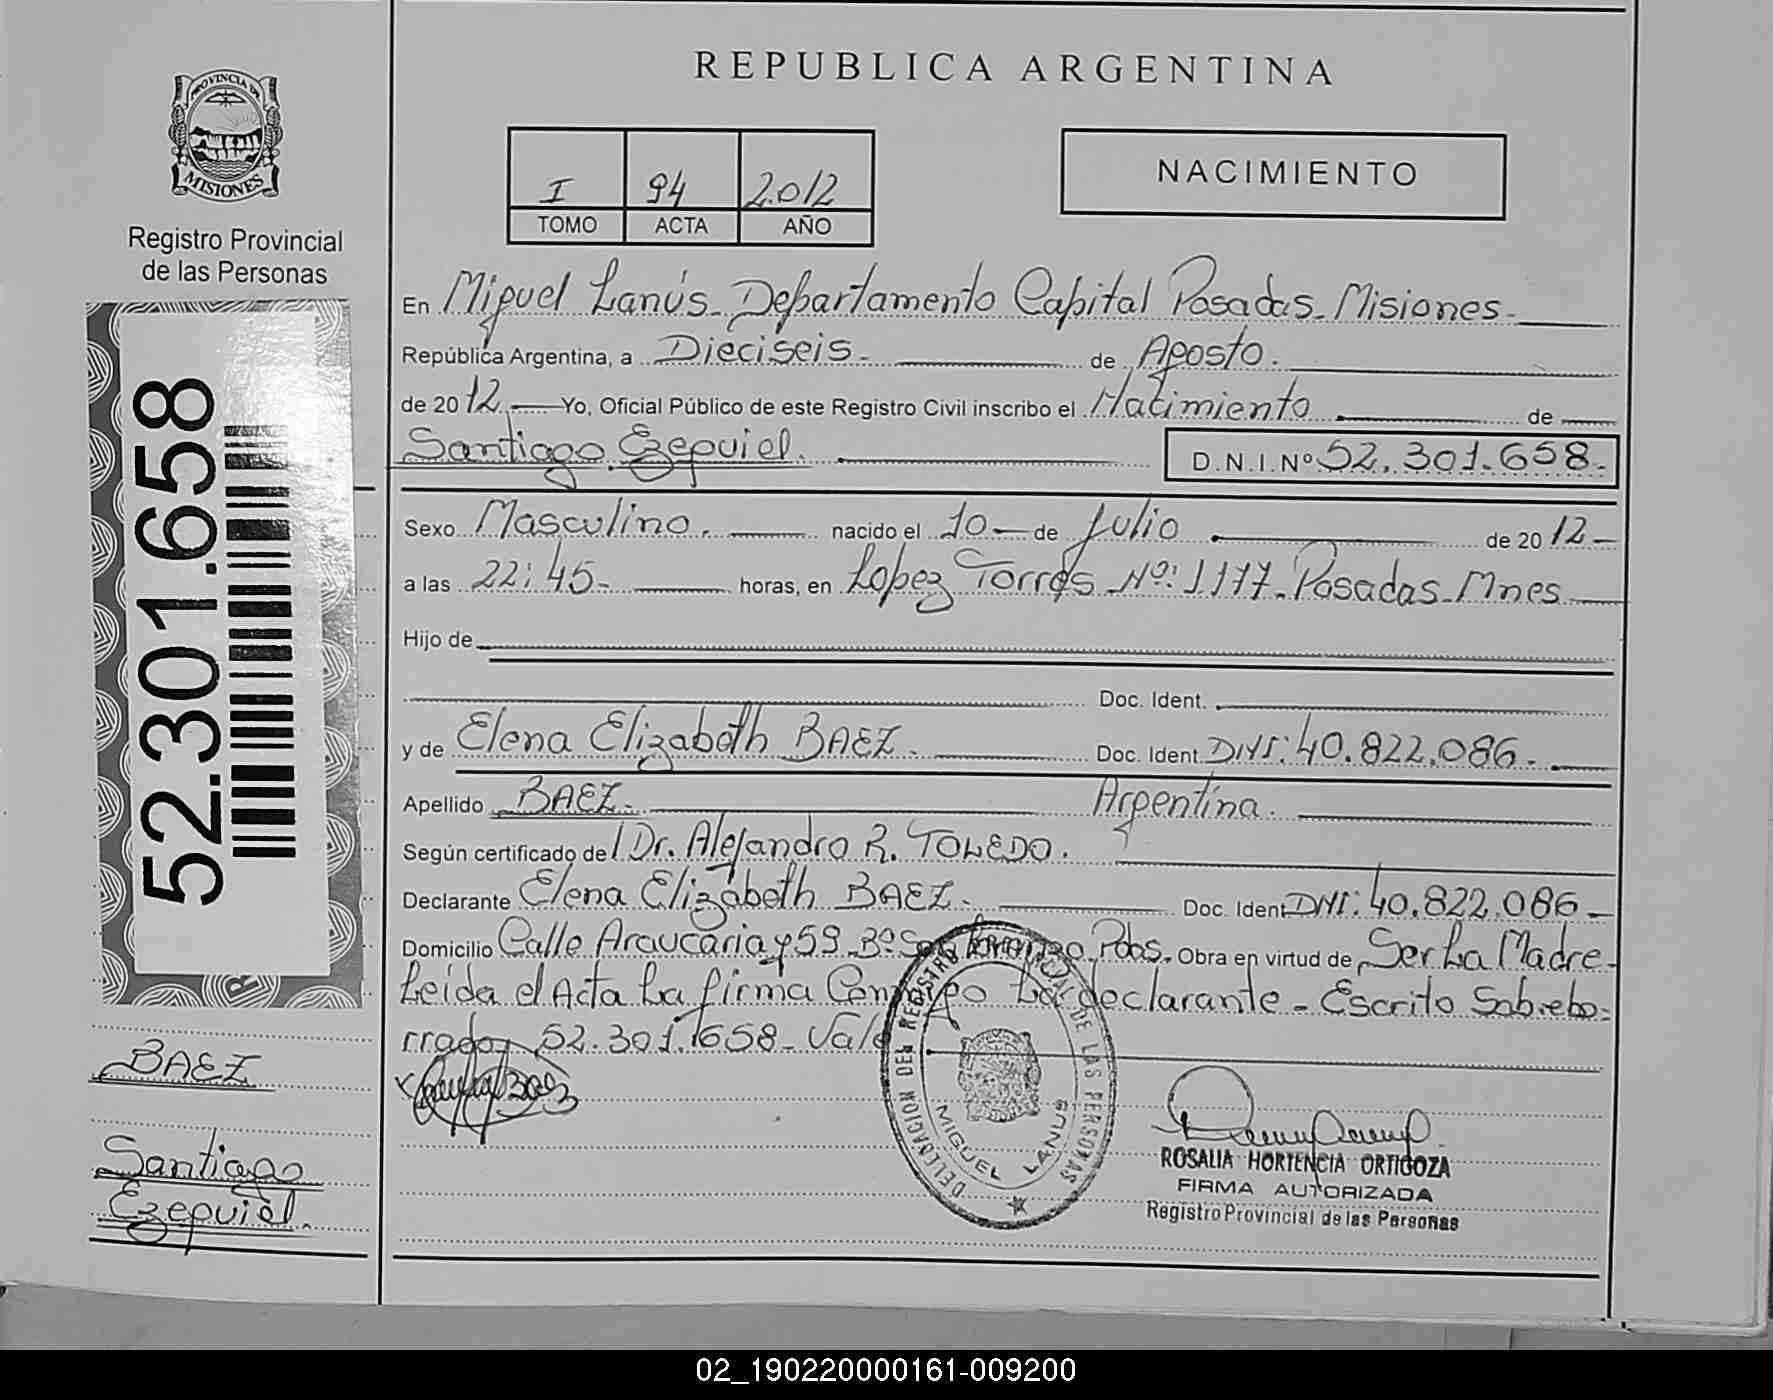 REPUBLICA ARGENTINA
PROVINCIA DE
MISIONES
Registro Provincial
de las Personas
52.301.658
I 94 2.012
TOMO ACTA AÑO
NACIMIENTO
En Miguel Lanús - Departamento Capital Posadas - Misiones -
República Argentina, a Dieciseis - de Agosto.
de 2012 Yo, Oficial Público de este Registro Civil inscribo el Nacimiento de
Santiago Ezequiel. D.N.I.Nº 52.301.658.
Sexo Masculino. nacido el 10 de Julio de 2012
a las 22:45 - horas, en Lopez Torres Nº: 1177 - Posadas - Mnes
Hijo de
Doc. Ident.
y de Elena Elizabeth BAEZ - Doc. Ident. DNI: 40.822.086 -
Apellido BAEZ - Argentina.
Según certificado del Dr. Alejandro R. TOLEDO.
Declarante Elena Elizabeth BAEZ - Doc. Ident DNI: 40.822.086 -
Domicilio Calle Araucaria y 59 - Bº Pdas. Obra en virtud de Ser La Madre -
Leida el Acta La firma Conmigo La declarante - Escrito Sobrebo-
rrado, 52.301.658 - Vale
Baez
DELEGACION DEL REGISTRO PROVINCIAL DE LAS PERSONAS
MIGUEL LANUS
ROSALIA HORTENCIA ORTIGOZA
FIRMA AUTORIZADA
Registro Provincial de las Personas
BAEZ
Santiago
Ezequiel.
02_190220000161-009200